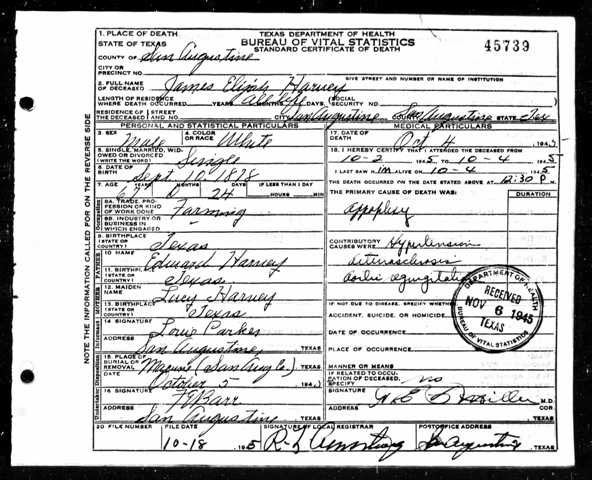 TEXAS DEPARTMENT OF HEALTH
BUREAU OF VITAL STATISTICS
STANDARD CERTIFICATE OF DEATH
45739
1. PLACE OF DEATH
STATE OF TEXAS
COUNTY OF San Augustine
CITY OR
PRECINCT NO.
GIVE STREET AND NUMBER OR NAME OF INSTITUTION
2. FULL NAME
OF DECEASED James Elijah Harvey
LENGTH OF RESIDENCE
WHERE DEATH OCCURRED YEARS All life MONTHS DAYS
SOCIAL
SECURITY NO.
RESIDENCE OF STREET
THE DECEASED AND NO. San Augustine COUNTY San Augustine STATE Tex
PERSONAL AND STATISTICAL PARTICULARS
3. SEX Male
4. COLOR
OR RACE White
5. SINGLE, MARRIED, WID-
OWED OR DIVORCED
(WRITE THE WORD) Single
6. DATE OF
BIRTH Sept. 10, 1878
7. AGE YEARS MONTHS DAYS IF LESS THAN 1 DAY
67 24 HOURS MIN.
8A. TRADE, PRO-
FESSION OR KIND
OF WORK DONE Farming
8B. INDUSTRY OR
BUSINESS IN
WHICH ENGAGED
9. BIRTHPLACE
(STATE OR
COUNTRY) Texas
10. NAME Edward Harvey
11. BIRTHPLACE
(STATE OR
COUNTRY) Texas
12. MAIDEN
NAME Lucy Harvey
13. BIRTHPLACE
(STATE OR
COUNTRY) Texas
14. SIGNATURE Louie Parker
ADDRESS San Augustine, TEXAS
15. PLACE OF
BURIAL OR
REMOVAL (San Aug Co.) TEXAS
DATE October 5 194
16. SIGNATURE Barr
ADDRESS San Augustine TEXAS
MEDICAL PARTICULARS
17. DATE OF
DEATH Oct 4 194
18. I HEREBY CERTIFY THAT I ATTENDED THE DECEASED FROM
10-2 1945 TO 10-4 1945
I LAST SAW HIM ALIVE ON 10-4 1945
THE DEATH OCCURRED ON THE DATE STATED ABOVE AT 12:30 P M.
THE PRIMARY CAUSE OF DEATH WAS: DURATION
apoplexy
CONTRIBUTORY
CAUSES WERE: Hypertension
IF NOT DUE TO DISEASE, SPECIFY WHETHER
ACCIDENT, SUICIDE, OR HOMICIDE
DATE OF OCCURRENCE
PLACE OF OCCURRENCE
MANNER OR MEANS
IF RELATED TO OCCU-
PATION OF DECEASED,
SPECIFY no
SIGNATURE M.D.
ADDRESS COR.
TEXAS
DEPARTMENT OF HEALTH
RECEIVED
NOV 6 1945
TEXAS
BUREAU OF VITAL STATISTICS
20. FILE NUMBER
FILE DATE 10-18 1945
SIGNATURE OF LOCAL REGISTRAR Armstrong
POSTOFFICE ADDRESS San Augustine, TEXAS
NOTE THE INFORMATION CALLED FOR ON THE REVERSE SIDE